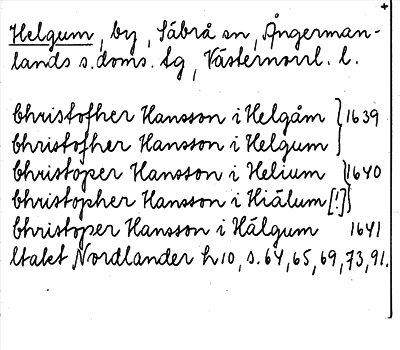 Helgum, by, Säbrå sn, Ångerman-
lands s.doms. tg, Västernorrl. l.
Christofher Hansson i Helgåm } 1639
Christofher Hansson i Helgum
Christoper Hansson i Helium } 1640
Christopher Hansson i Hiälum [!]
Christoper Hansson i Hälgum 1641
ltakt Nordlander h 10, s. 64, 65, 69, 73, 91.